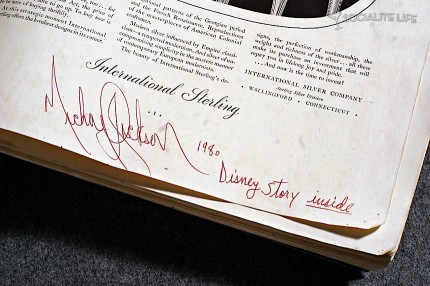 SOCIALITE LIFE
patterns of the Georgian period
and the French Renaissance. Reproductions
of the masterpieces of American Colonial
silver influenced by Empire classi-
cism
simplicity to the austere manner
of contemporary European modernists.
The beauty of International Sterling's de-
signs, the perfection of workmanship, the
weight and richness of the silver . . . all these
make its purchase an investment that will
repay you in lifelong joy and pride.
. . . And now is the time to invest!
INTERNATIONAL SILVER COMPANY
Sterling Silver Division
WALLINGFORD · CONNECTICUT ·
International Sterling
. . .
Michael Jackson
1980
Disney Story inside